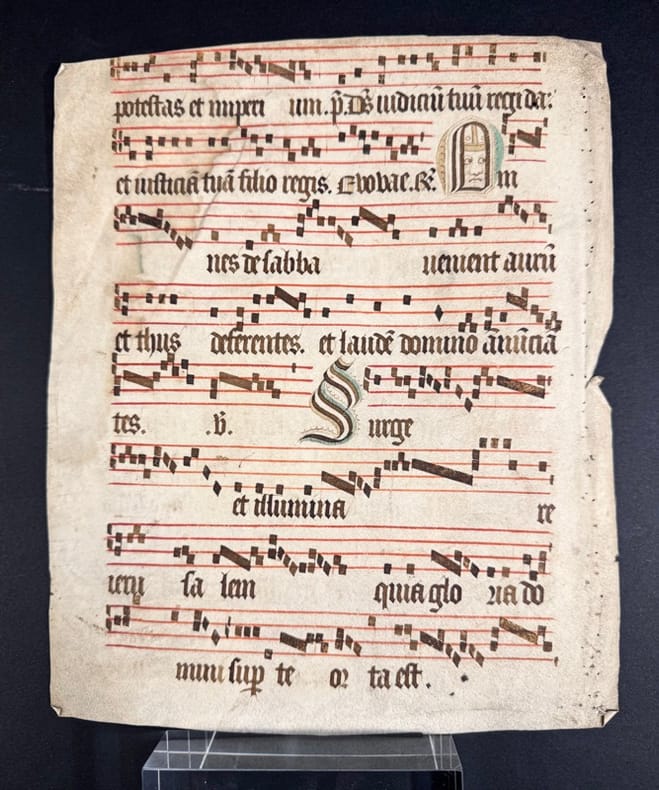 potestas et imperi um. p̄. Ds̄ iudiciū tuū regi da:
et iusticiā tuā filio regis. Evovae. R̄. Om
nes de sabba uenient aurū
et thus deferentes. et laudē domino ānūciā
tes. .v̄. Surge
et illumina re
ieru sa lem quia glo ria do
mini sup te or ta est.